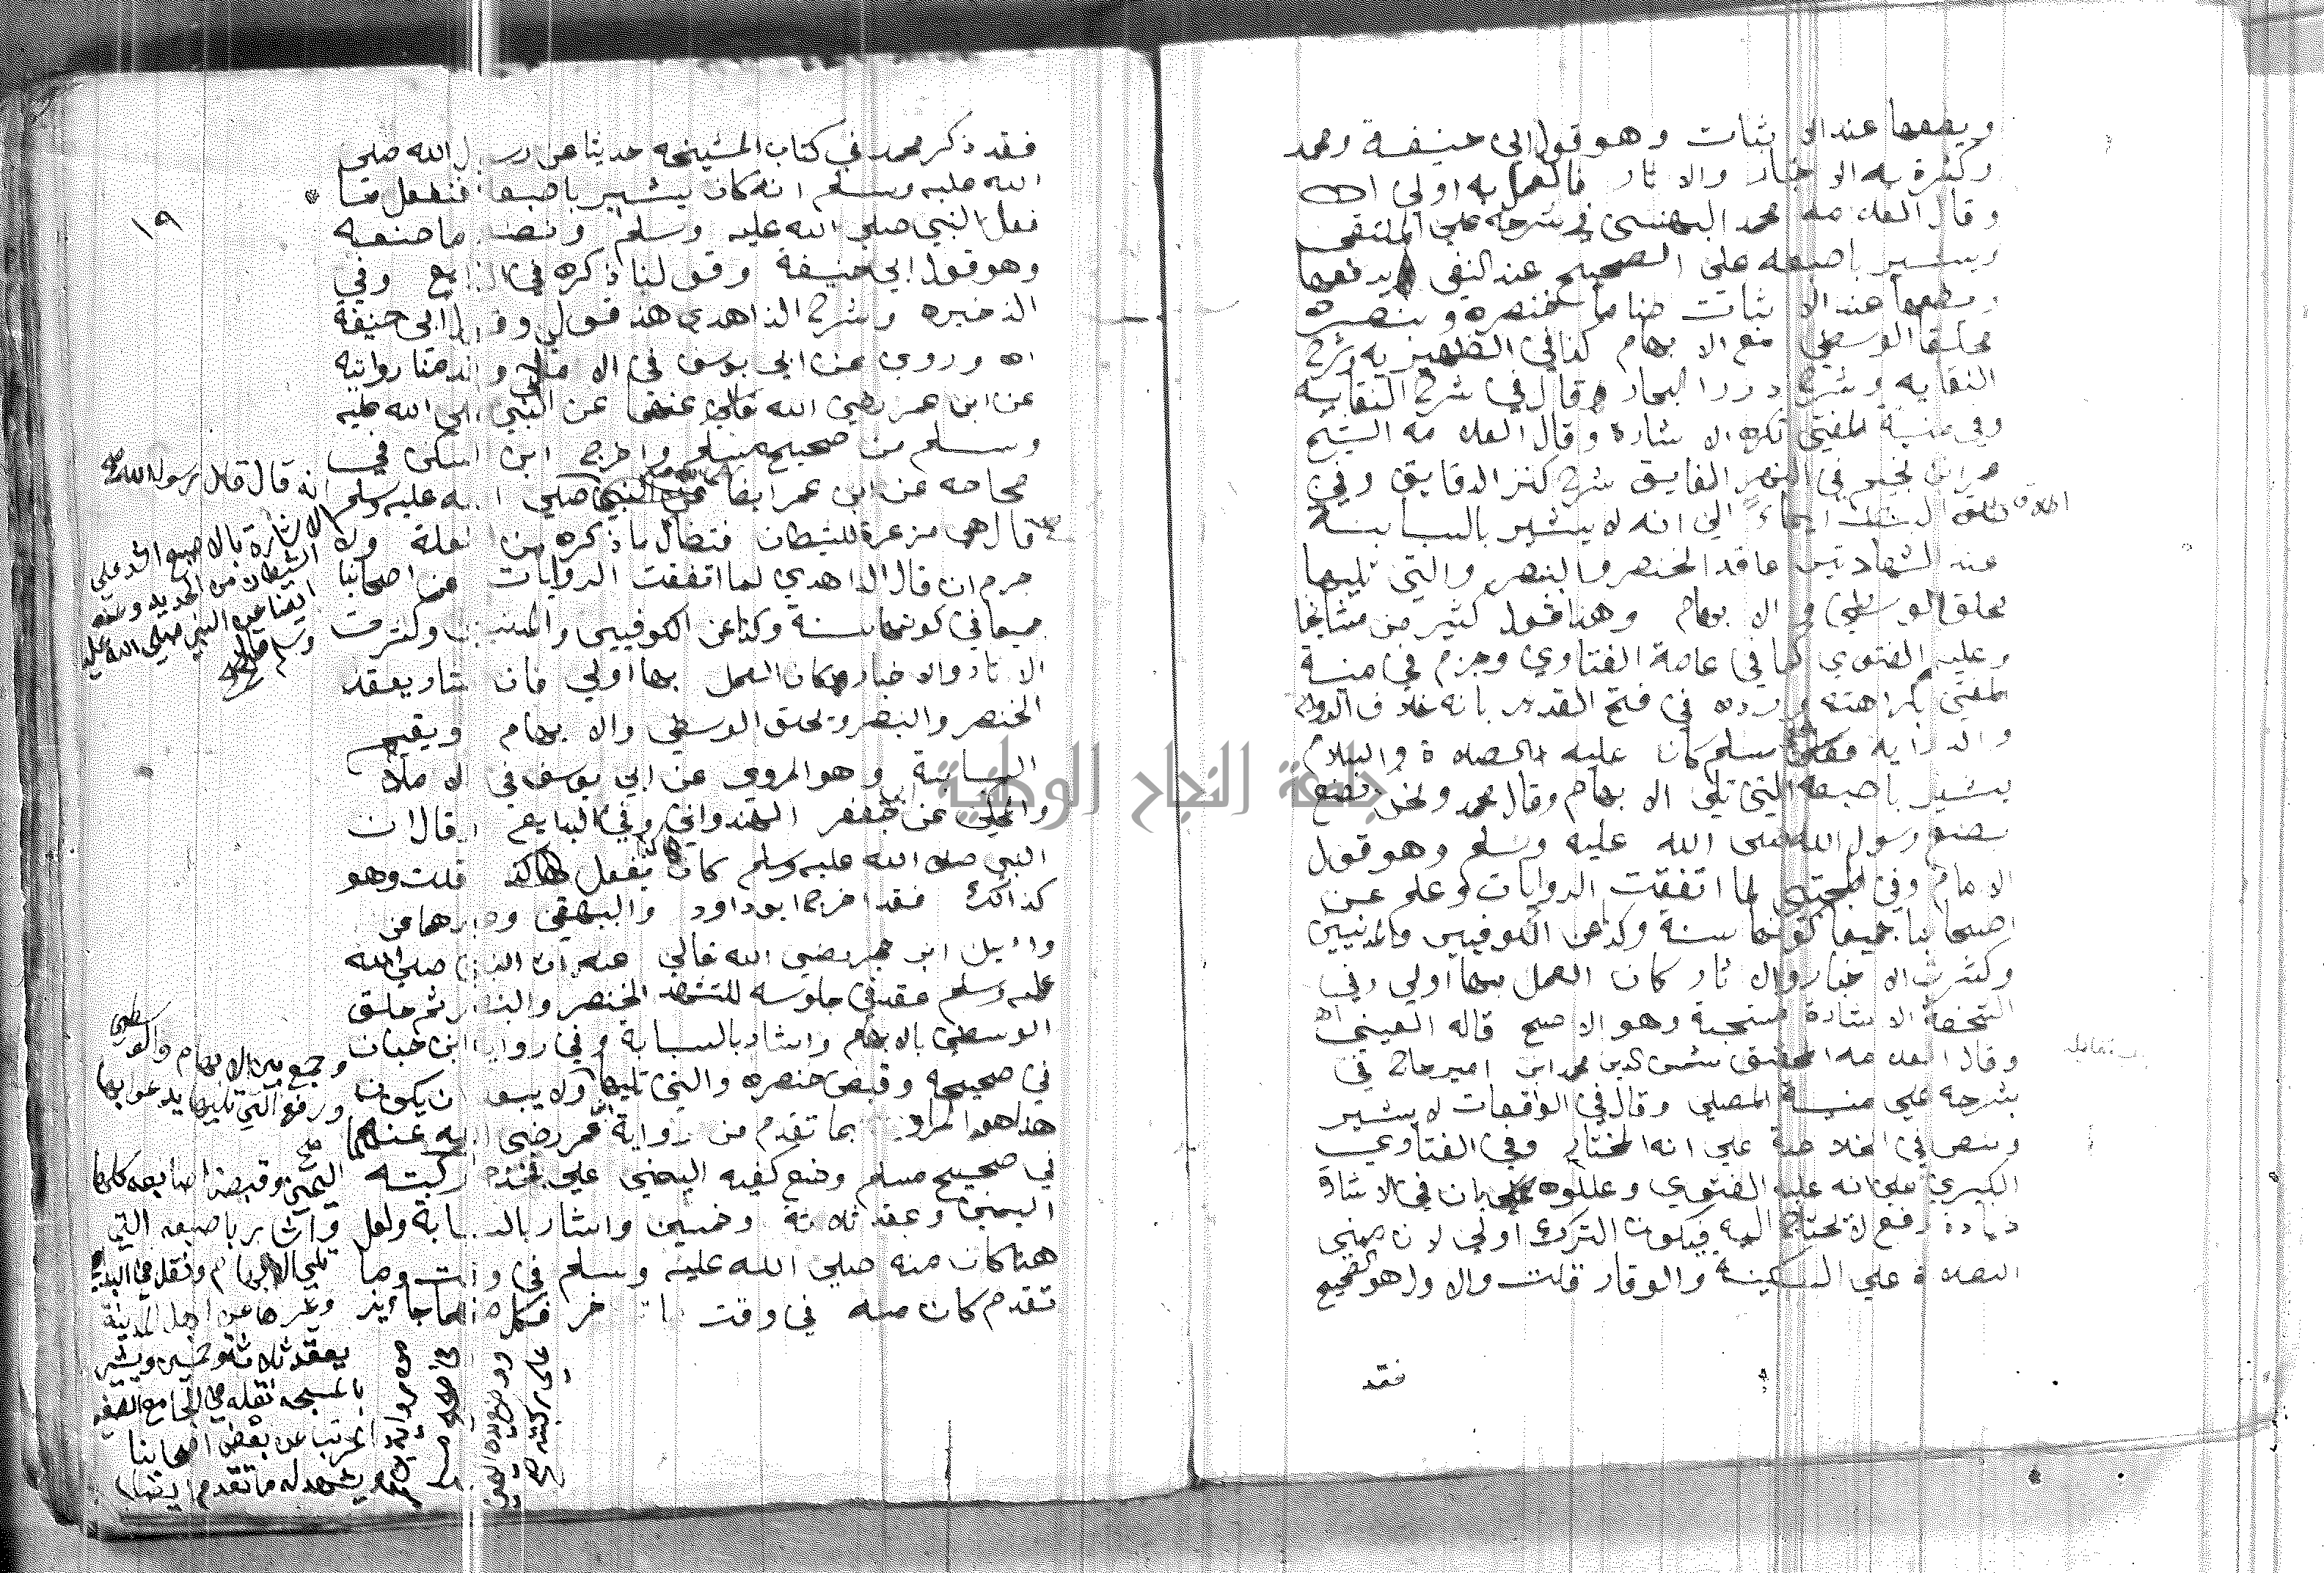 ويضعها عند الاثبات وهو قول ابي حنيفة ومحمد
وكثرة به الاخبار والاثار فالعمل به اولى اه
وقال العلامه محمد البهنسي في شرحه على الملتقى
ويشير باصبعه على الصحيح عند النفي يرفعها
ويضعها عند الاثبات ضاما خنصره وبنصره
محلقا الوسطى مع الابهام كذا في الظهيريه وشرح
النقايه وشرح درر البحار وقال في شرح النقايه
وفي منية المفتي تكره الاشارة وقال العلامه الشيخ
عمر ابن نجيم في النهر الفايق شرح كنز الدقايق وفي
اطلاق البسط ايماء الى انه لا يشير بالسبابة
عند الشهادتين عاقدا الخنصر والبنصر والتي تليها
محلق الوسطى والابهام وهذا قول كثير من مشايخنا
وعليه الفتوى كما في عامة الفتاوى وجزم في منية
المفتي بكراهته ورده في فتح القدير بانه خلاف الرواية
والدراية ففي مسلم كان عليه الصلاة والسلام
يشير باصبعه التي تلي الابهام وقال محمد ونحن نصنع
بصنع رسول الله صلى الله عليه وسلم وهو قول
الامام وفي المجتبى لما اتفقت الروايات وعلم عن
اصحابنا جميعا كونها سنة وكذا عن الكوفيين والمدنيين
وكثرت الاخبار والاثار كان العمل بها اولى وفي
التحفة الاشارة مستحبة وهو الاصح قاله العيني اه
وقال العلامه المحقق شمس الدين محمد ابن امير حاج في
شرحه على منية المصلي وقال في الواقعات لا يشير
ونص في الخلاصة على انه المختار وفي الفتاوى
الكبرى على انه عليه الفتوى وعللوه بان في الاشارة
زيادة رفع لا يحتاج اليه فيكون الترك اولى لان مبنى
الصلاة على السكينة والوقار قلت والاول هو الصحيح
فقد
١٩
فقد ذكر محمد في كتاب المشيخه حديثا عن رسول الله صلى
الله عليه وسلم انه كان يشير باصبعه فنفعل ما
فعل النبي صلى الله عليه وسلم ونصنع ما صنعه
وهو قول ابي حنيفة وقولنا ذكره في البدايع وفي
الذخيره وشرح الزاهدي هذا قولي وقول ابي حنيفة
اه وروى عن ابي يوسف في الامالي وقدمنا روايته
عن ابن عمر رضي الله تعالى عنهما عن النبي صلى الله عليه
وسلم من صحيح مسلم واخرج ابن السكن في
صحاحه عن ابن عمر ايضا عن النبي صلى الله عليه وسلم
قال هي مذعرة للشيطان فتضال ما ذكره من العلة ولا
جرم ان قال الزاهدي لما اتفقت الروايات عن اصحابنا
جميعا في كونها سنة وكذا عن الكوفيين والمدنيين وكثرت
الاثار والاخبار كان العمل بها اولى فان اشار يعقد
الخنصر والبنصر ويحلق الوسطى والابهام ويقيم
السبابة وهو المروي عن ابي يوسف في الاملاء
والمحكي عن ابي جعفر الهندواني وفي البدايع وقال ان
النبي صلى الله عليه وسلم كان يفعل هكذا قلت وهو
كذلك فقد اخرج ابو داود والبيهقي وغيرهما عن
وائيل ابن حجر رضي الله تعالى عنه ان النبي صلى الله
عليه وسلم عقد في جلوسه للتشهد الخنصر والبنصر ثم حلق
الوسطى بالابهام واشار بالسبابة وفي رواية ابن حبان
في صحيحه وقبض خنصره والتي تليها ولا يبعد ان يكون
هذا هو المراد بما تقدم من رواية ابن عمر رضي الله عنهما
في صحيح مسلم وضع كفه اليمنى على فخذه
اليمنى وعقد ثلاثة وخمسين واشار بالسبابة ولعل
هذا كان منه صلى الله عليه وسلم في وقت وما
تقدم كان منه في وقت اخر فكل منهما جايز
انه قال قال رسول الله
الاشارة بالاصبع اشد على
الشيطان من الحديد وعنه
ايضا عن النبي صلى الله عليه
وسلم قال صح
وجمع بين الابهام والوسطى
ورفع التي تليها يدعو بها
ركبته اليمنى وقبض اصابعه كلها
واشار باصبعه التي
تلي الابهام ونقل في البدايع
وغيرها عن اهل المدينة
يعقد ثلاثة وخمسين ويشير
بالمسبحه نقله في الجامع الصغير
المرتب عن بعض اصحابنا
يشهد له ما تقدم ايضا
على ركبته صح
جامعة النجاح الوطنية